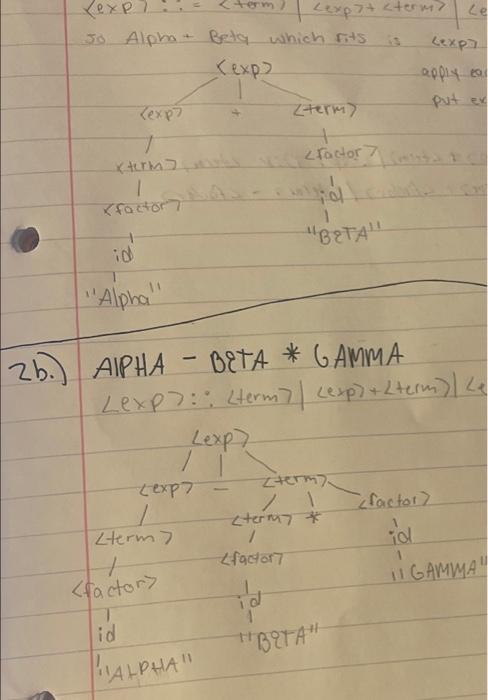 <exp> ::= <term> | <exp> + <term> | <e
so Alpha + Beta which fits is <exp>
<exp> apply ea
<exp> + <term> put ex
<term> <factor>
<factor> id
id "BETA"
"Alpha"
2b.) ALPHA - BETA * GAMMA
<exp> :: <term> | <exp> + <term> | <e
<exp>
<exp> - <term>
<term> * <factor>
<term> id
<factor> "GAMMA"
<factor>
id
id
"BETA"
"ALPHA"